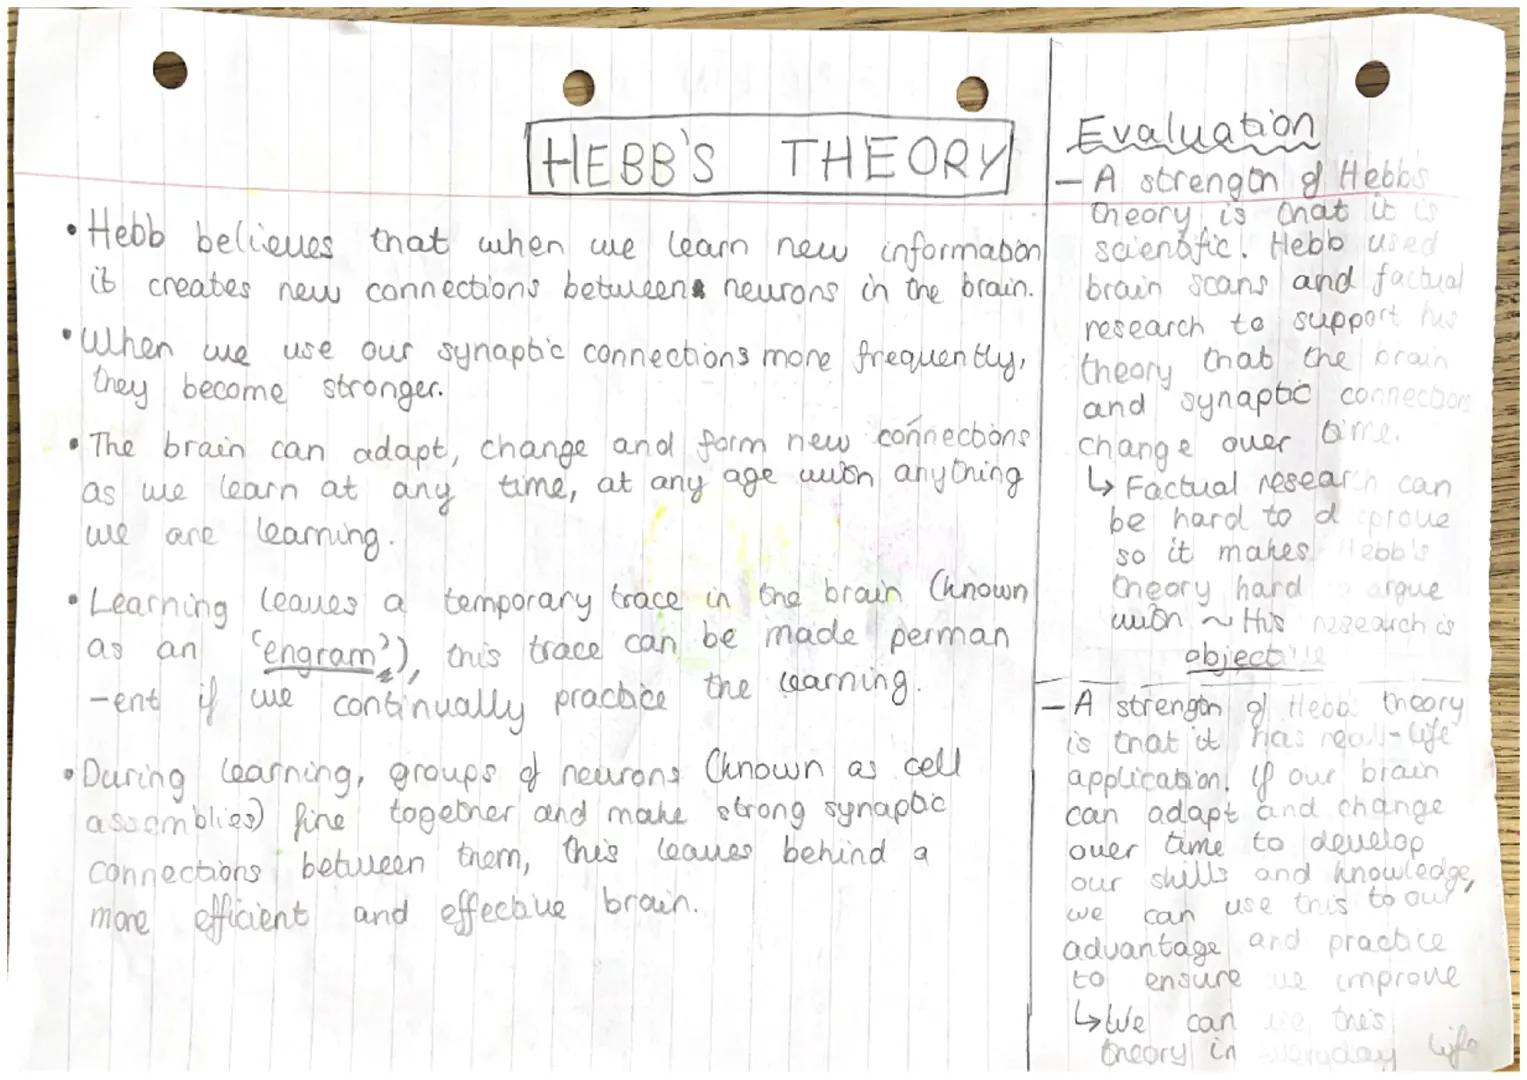 HEBB'S THEORY
• Hebb believes that when we learn new information
it creates new connections between neurons in the brain.
• When we use our synaptic connections more frequently,
they become stronger.
• The brain can adapt, change and form new connections
as we learn at any time, at any age with anything
we are learning.
• Learning leaves a temporary trace in the brain (known
as an 'engram'), this trace can be made perman
-ent if we continually practice the learning.
• During learning, groups of neurons (known as cell
assemblies) fire together and make strong synaptic
connections between them, this leaves behind a
more efficient and effective brain.
Evaluation
- A strength of Hebb's
theory is that it is
scientific. Hebb used
brain scans and factual
research to support his
theory that the brain
and synaptic connections
change over time.
↳ Factual research can
be hard to disprove
so it makes Hebb's
theory hard to argue
with ~ His research is
objective
- A strength of Hebb's theory
is that it has real-life
application. If our brain
can adapt and change
over time to develop
our skills and knowledge,
we can use this to our
advantage and practice
to ensure we improve
↳ We can use this
theory in everyday life